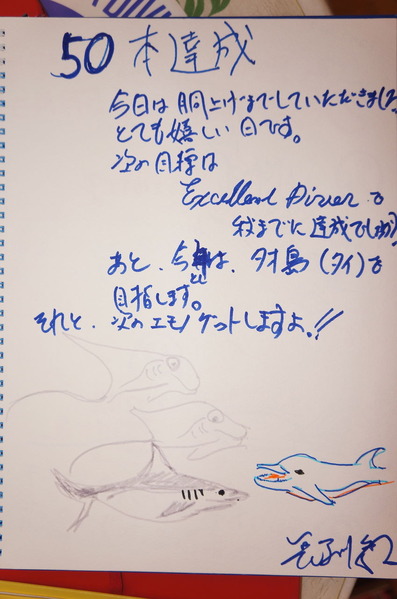 50本達成
今日は胴上げまでしていただきました
とても嬉しい日です。
次の目標は
Excellent Diver を
秋までに達成でしょうか
あと、今年は、タオ島(タイ)を
目指します。
それと、次のエモノゲットしますよ!!